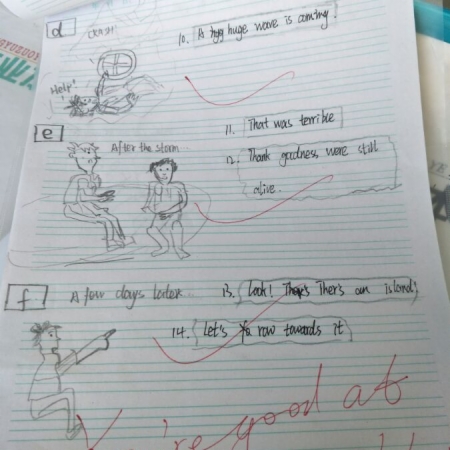 d
CRASH!
10. A huge wave is coming!
Help!
e
After the storm
11. That was terrible
12. Thank goodness were still
alive.
f
A few days later...
13. Look! Ther's an island!
14. Let's row towards it
You're good at